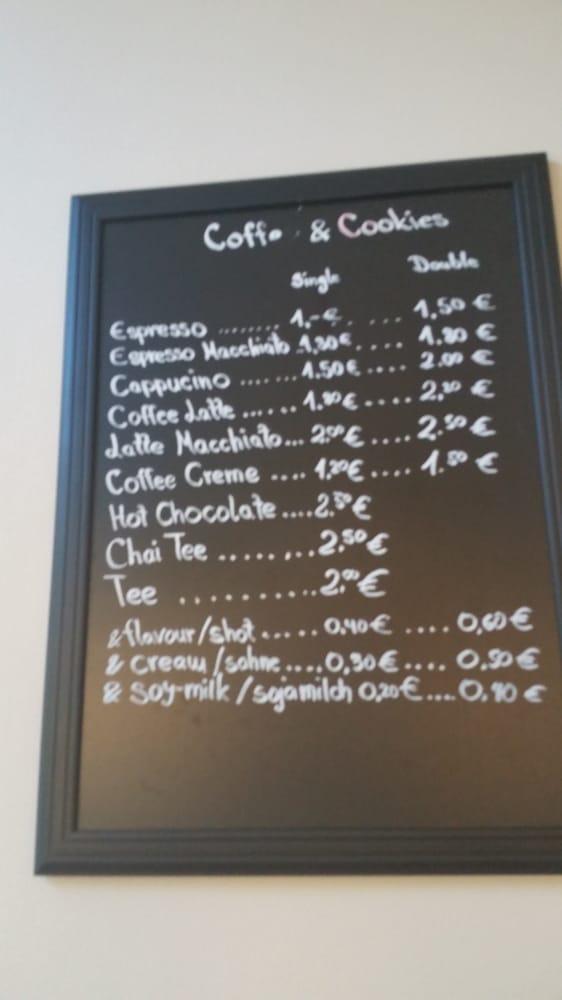 Coffe & Cookies
Single Double
Espresso ........ 1,-€ .... 1,50 €
Espresso Macchiato ..1,30€.... 1.80 €
Cappucino ....... 1.50€.... 2.00 €
Coffee Latte ...... 1.80€....
Latte Macchiato... 2,00€.... 2.50€
Coffee Creme .... 1,20€.... 1.50 €
Hot Chocolate....2.50€
Chai Tee ........2.50€
Tee ..........2,00€
& flavour/shot..... 0,40€ .... 0,60€
& cream/sahne....0,30€.... 0.50€
& Soy-milk/sojamilch 0,20€....